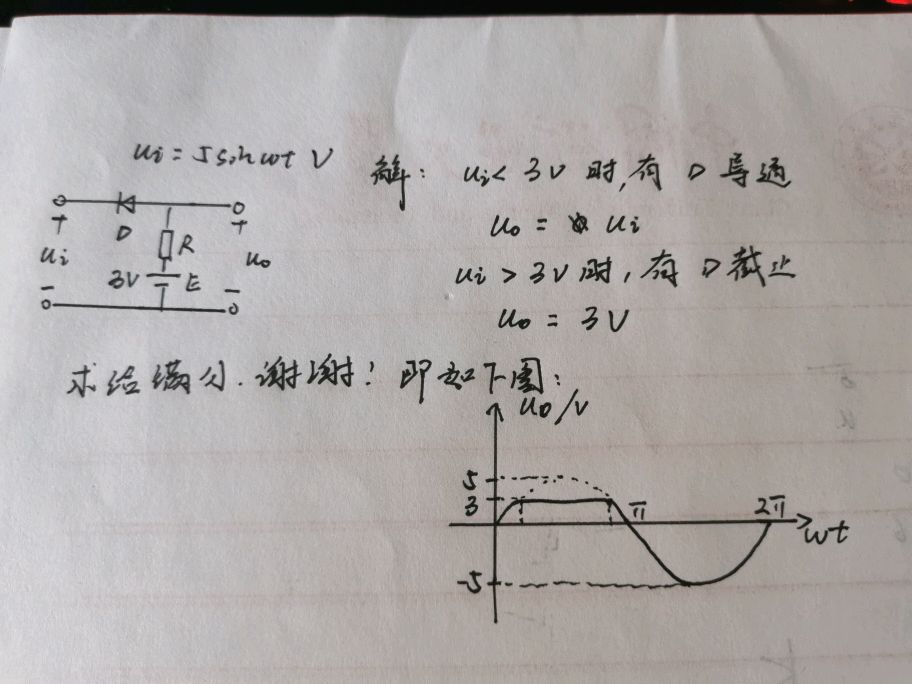 ui = 5sinωt V
D
R
3V
E
+
ui
-
+
uo
-
解: ui< 3V 时,有 D 导通
uo = ui
ui > 3V 时, 有 D 截止
uo = 3V
求给满分.谢谢! 即如下图:
uo/V
5
3
-5
π
2π
ωt